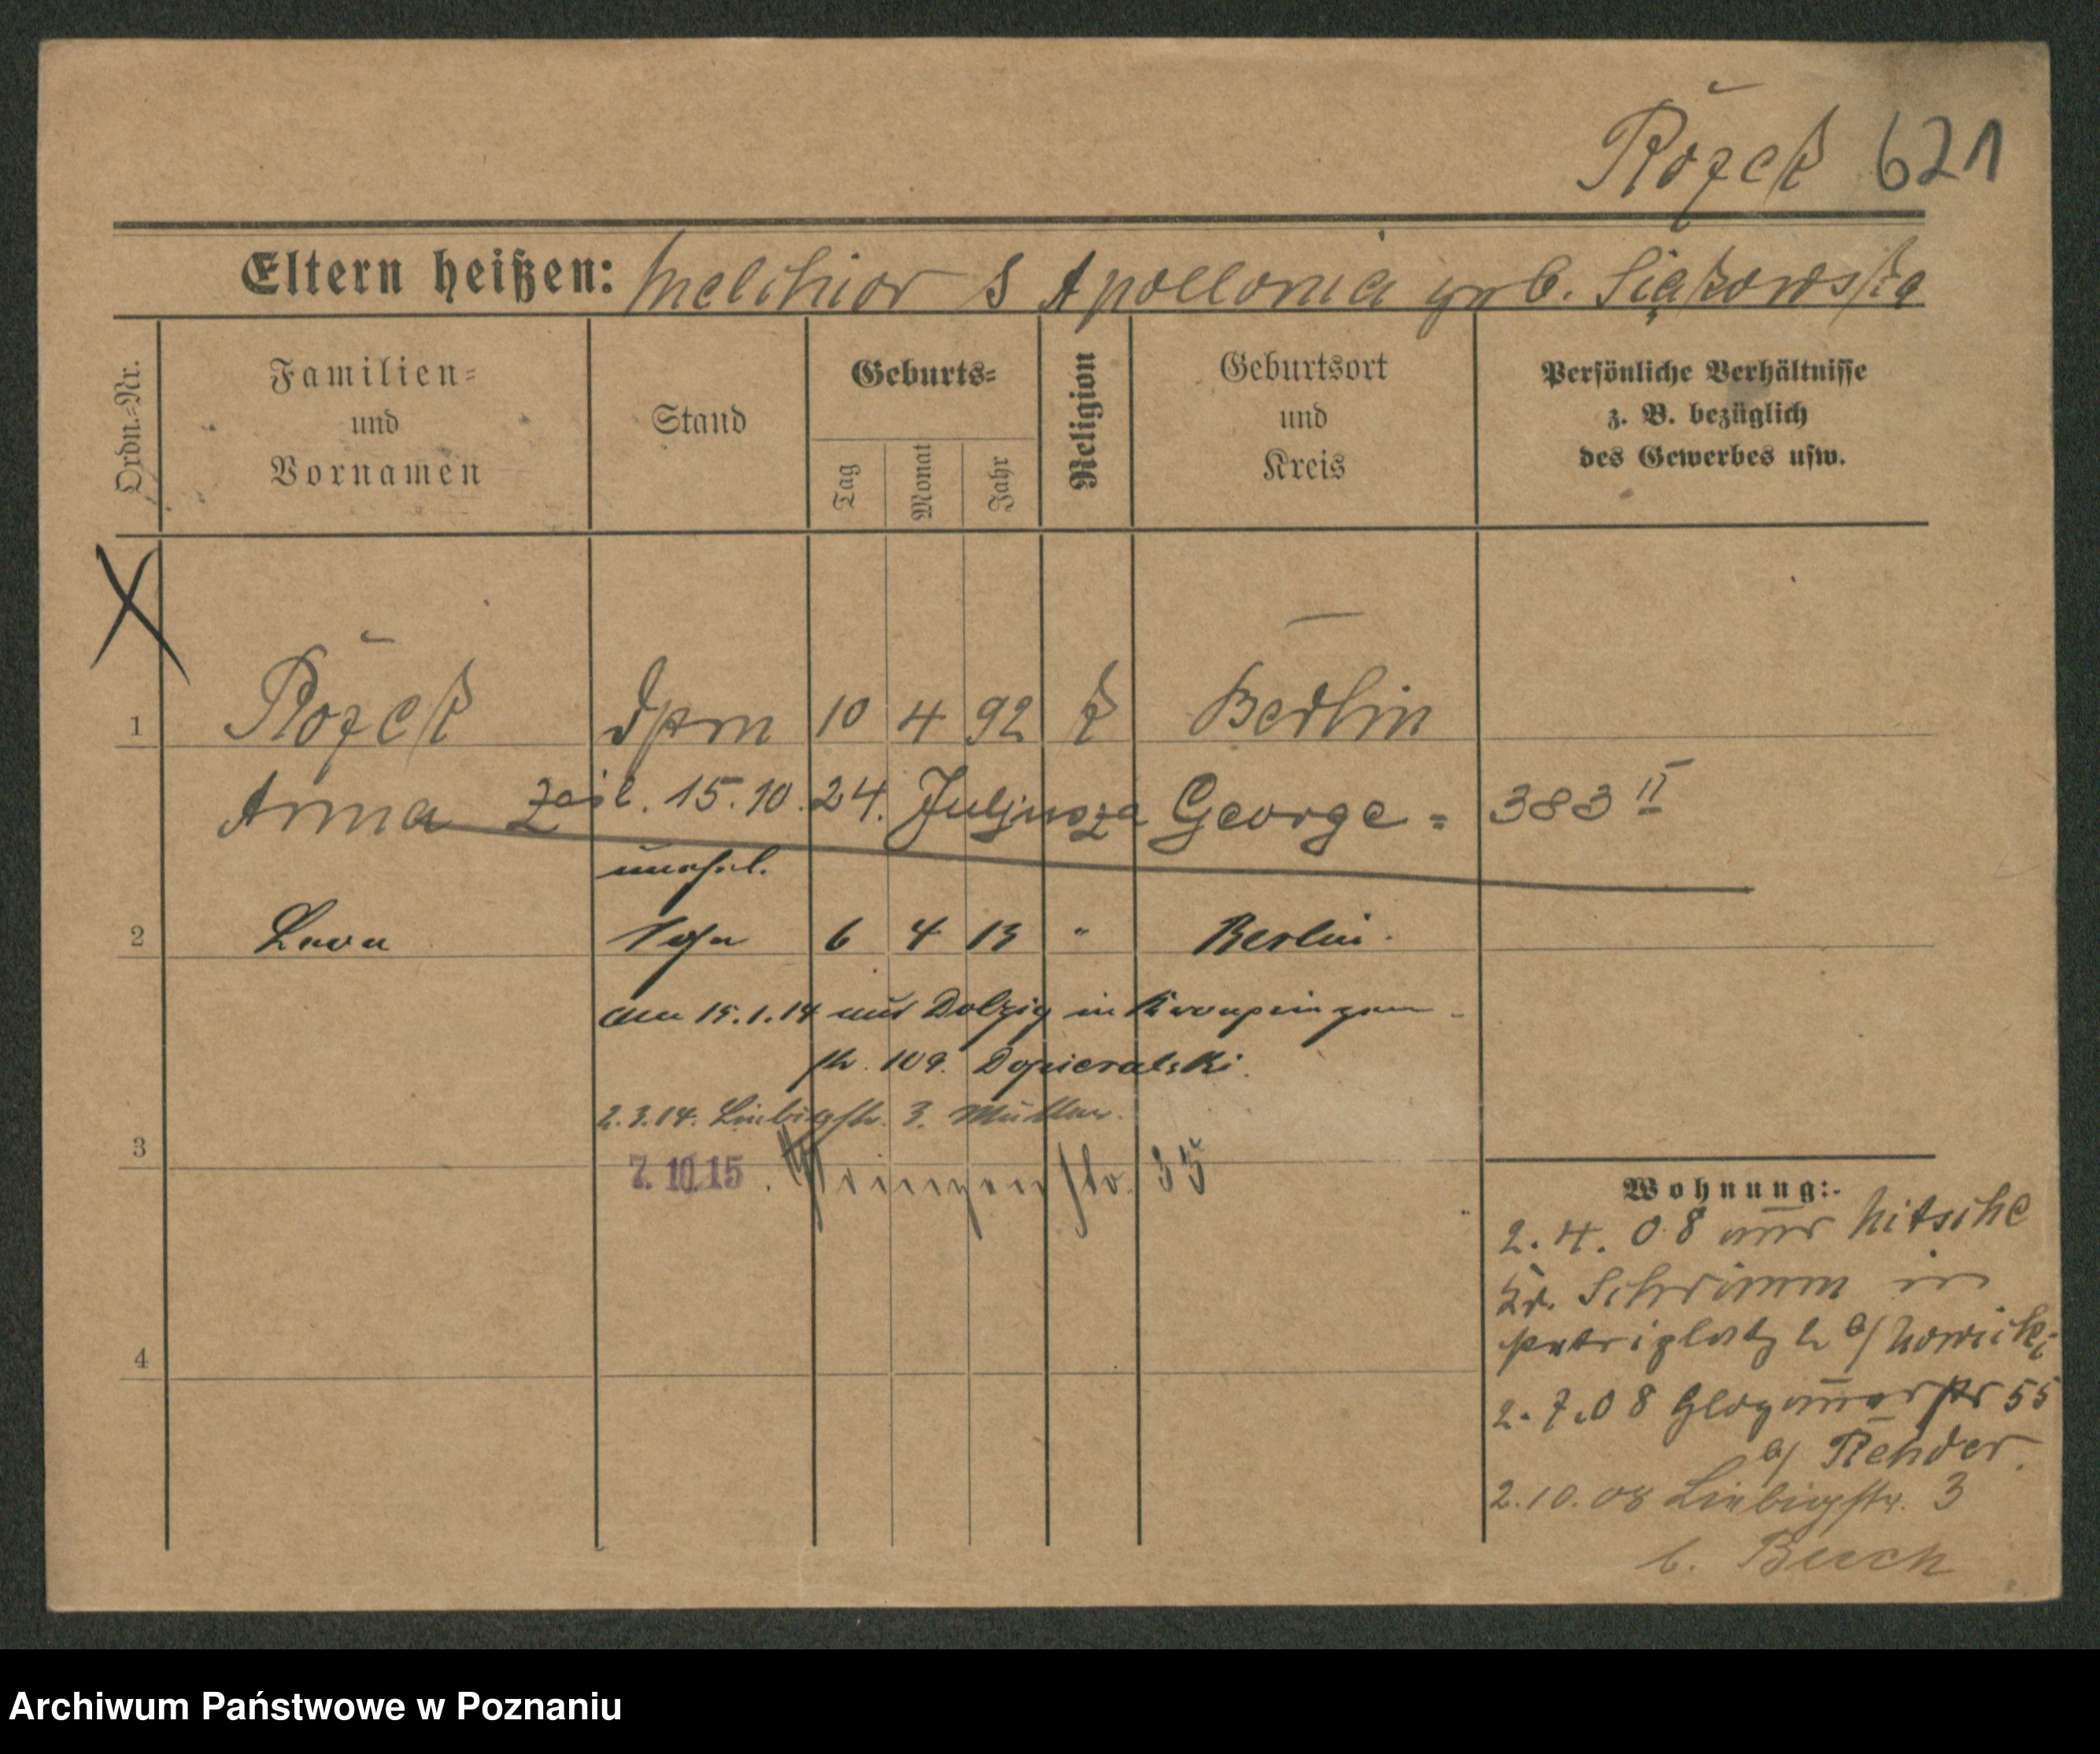 Rożek 621
Eltern heißen: Melchior & Apollonia geb. Siąkowska
Ordn.=Nr.
Familien=
und
Vornamen
Stand
Geburts=
Tag
Monat
Jahr
Religion
Geburtsort
und
Kreis
Persönliche Verhältnisse
z. B. bezüglich
des Gewerbes usw.
X
1 Rożek 10 4 92 k Berlin
Anna zaśl. 15.10.24. Juljusza George = 383 II
unehel.
2 6 4 13 " Berlin.
am 15.1.14 aus Dolzig in Kronprinzen-
str. 109. Dopieralski.
2.3.14. Liebigstr. 3. Müller.
3
7.10.15. Prinzenstr. 35
4
Wohnung:
2.4.08 aus Nitsche
Kr. Schrimm in
Petriplatz 2 b/ Nowicki
2.7.08 Glogauerstr 55
b/ Rehder.
2.10.08 Liebigstr. 3
b. Buch
Archiwum Państwowe w Poznaniu